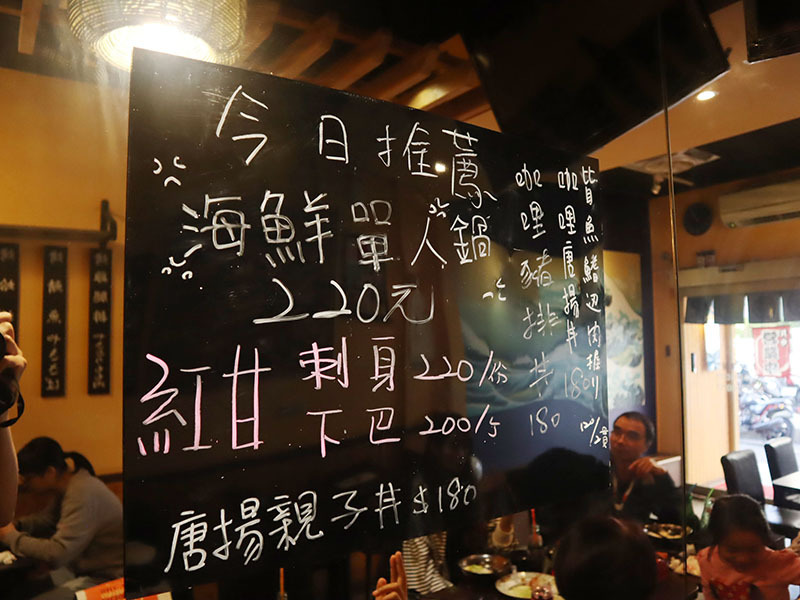 今日推薦
海鮮單人鍋
220元
紅甘 刺身 220/份
下巴 200/5
唐揚親子丼 $180
咖哩豬排丼 180
咖哩唐揚丼 180
比目魚鰭辺肉握り 120/2貫